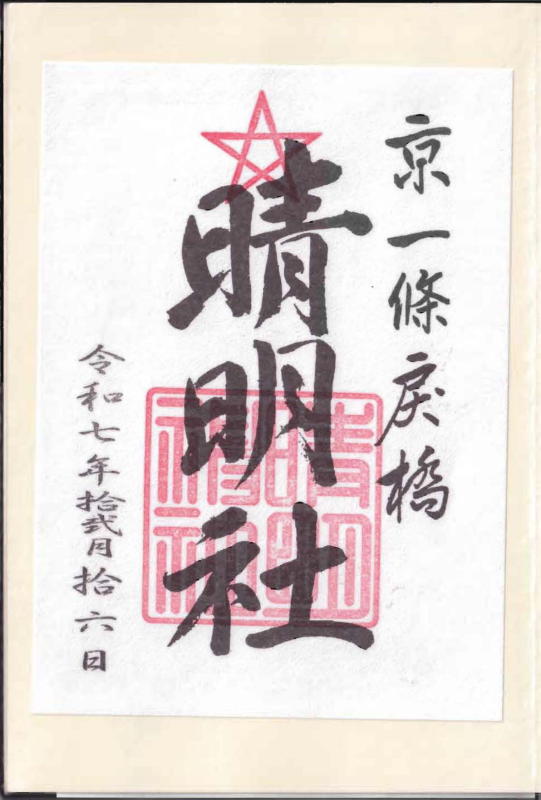 京一條戻橋
晴明社
晴明神社
令和七年拾弐月拾六日